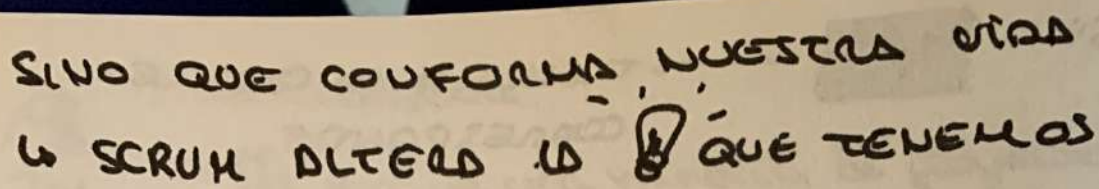 SINO QUE CONFORMA NUESTRA VIDA
↳ SCRUM ALTERA LA 💡 QUE TENEMOS